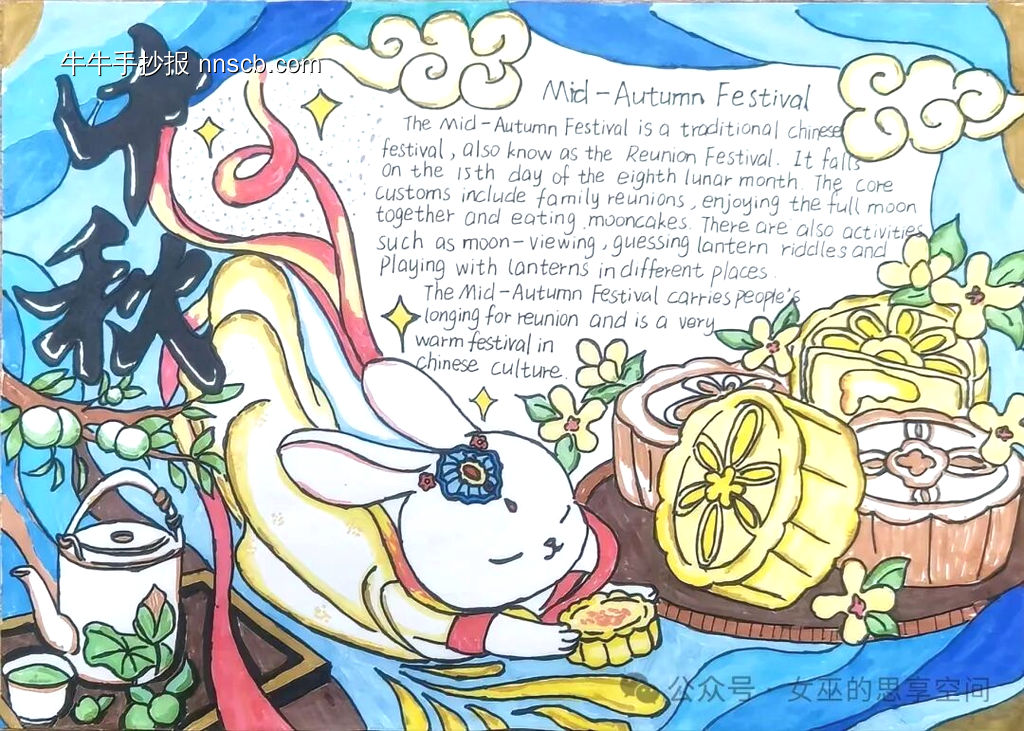 牛牛手抄报 nnscb.com
中秋
Mid-Autumn Festival
The Mid-Autumn Festival is a traditional chinese
festival, also know as the Reunion Festival. It falls
on the 15th day of the eighth lunar month. The core
customs include family reunions, enjoying the full moon
together and eating mooncakes. There are also activities
such as moon-viewing, guessing lantern riddles and
Playing with lanterns in different places.
The Mid-Autumn Festival carries people's
longing for reunion and is a very
warm festival in
chinese culture.
公众号 · 女巫的思享空间